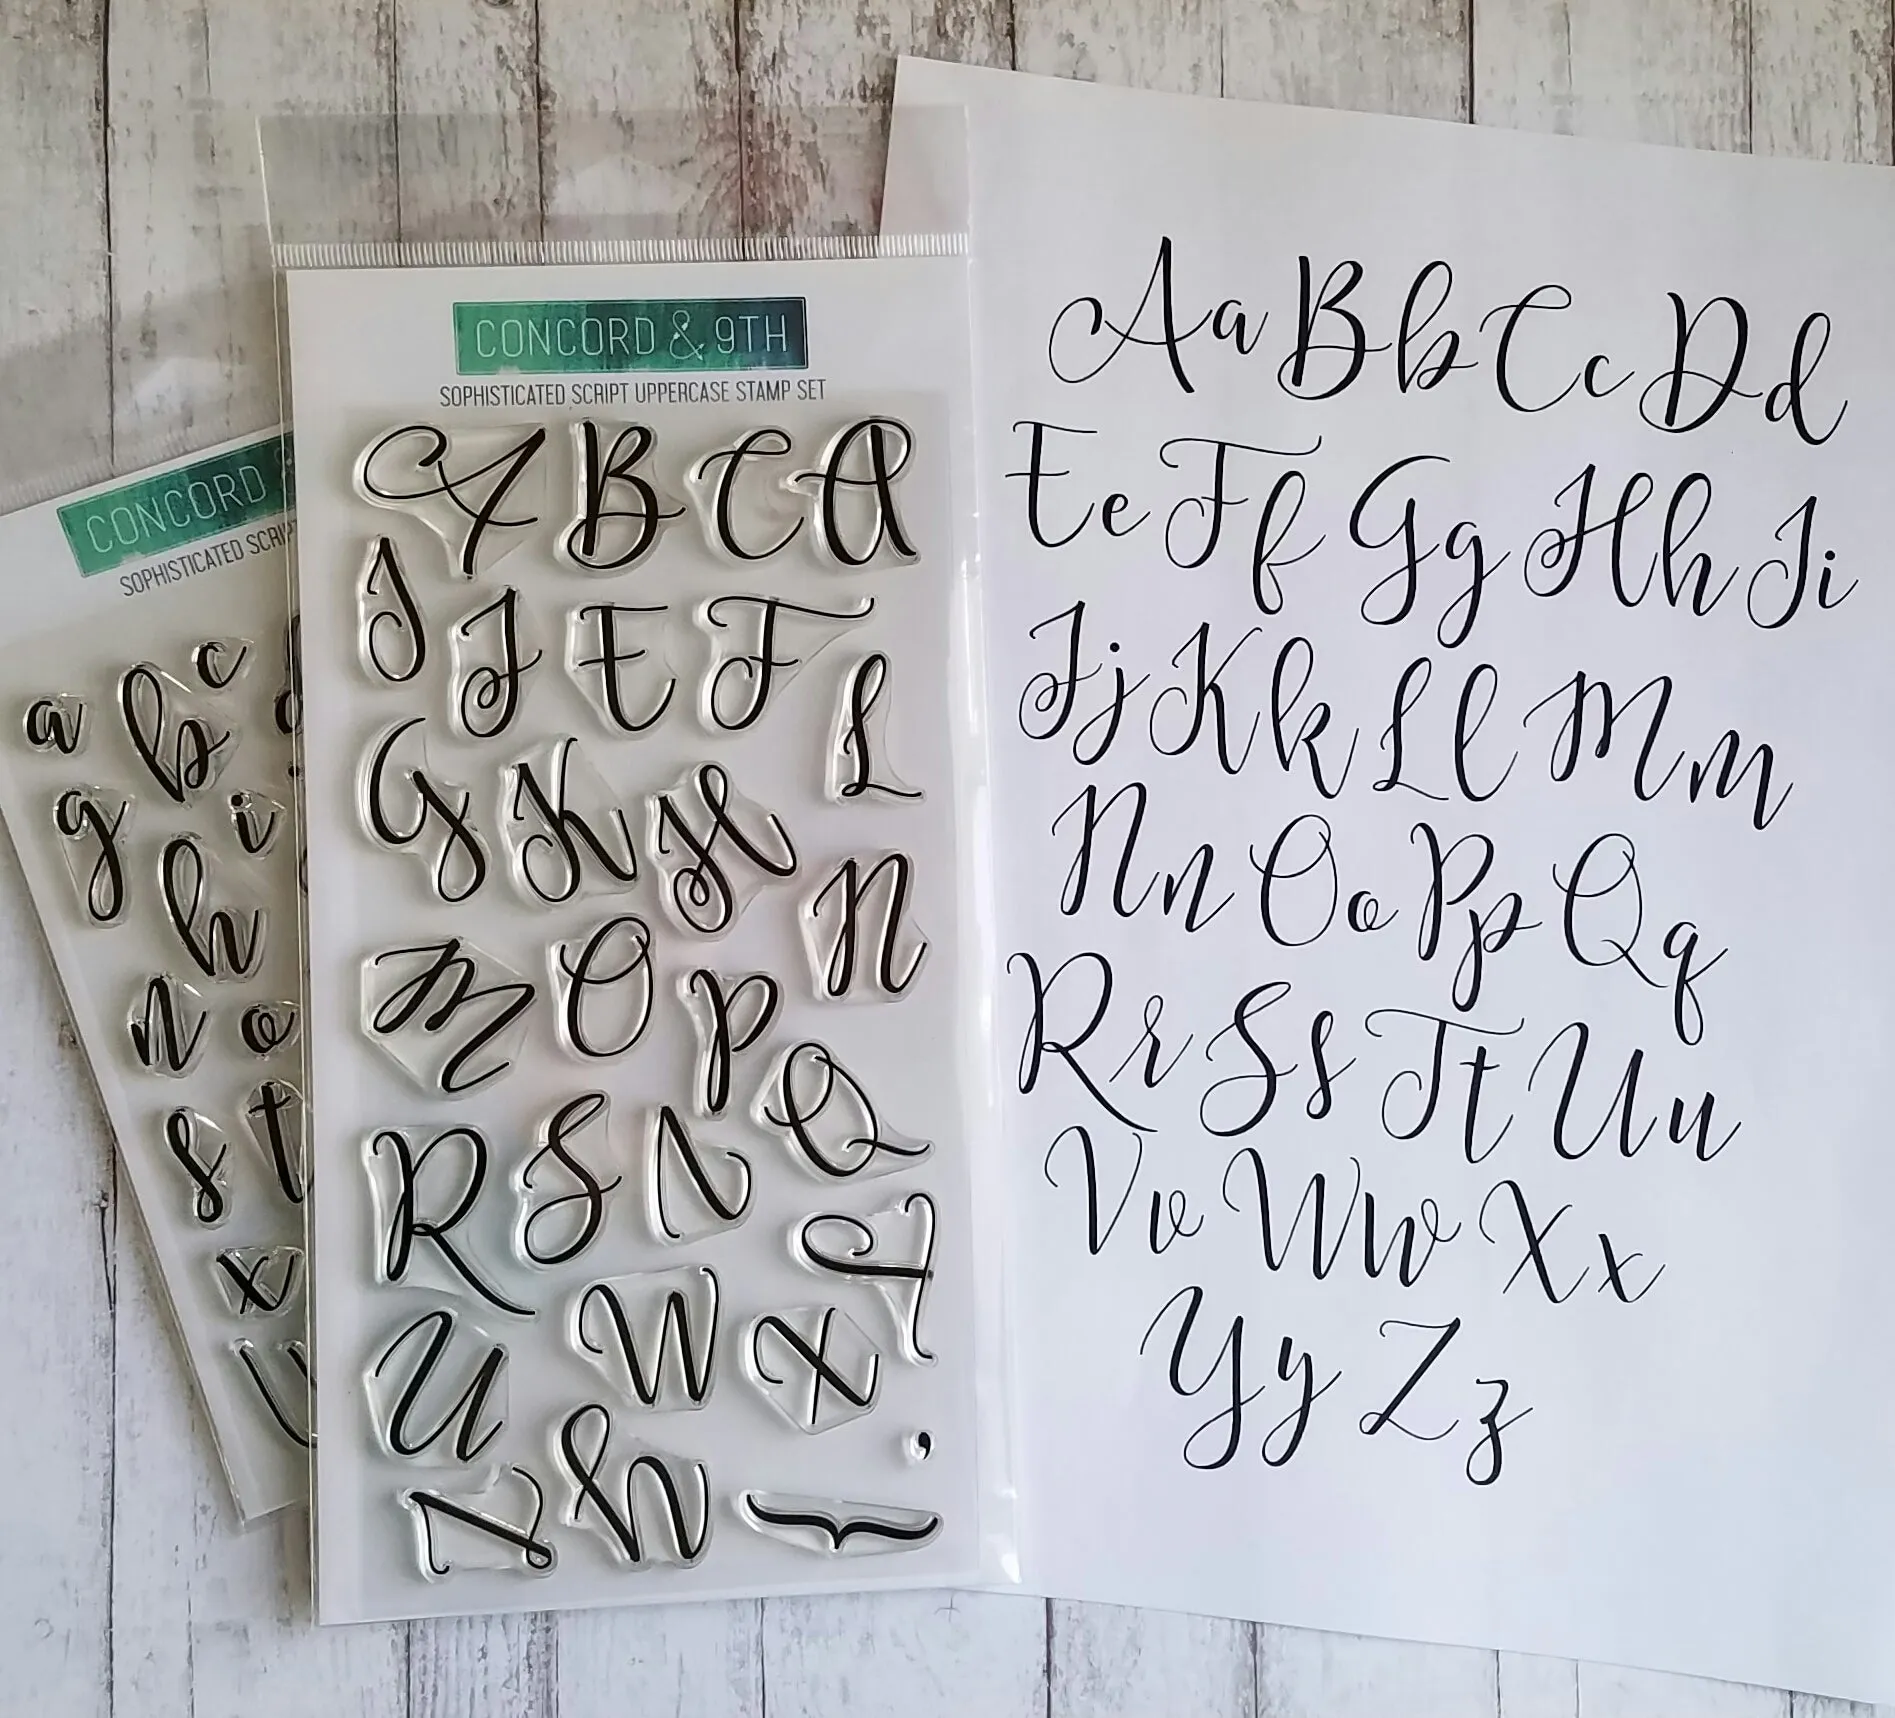 CONCORD & 9TH
SOPHISTICATED SCRIPT UPPERCASE STAMP SET
A B C D
I J E F
L
G K H
N
M O P
Q
R S V
T
U W X
,
Z Y
CONCORD
SOPHISTICATED
a b c
g i
h
n o
s t
x
Aa Bb Cc Dd
Ee Ff Gg Hh Ii
Jj Kk Ll Mm
Nn Oo Pp Qq
Rr Ss Tt Uu
Vv Ww Xx
Yy Zz